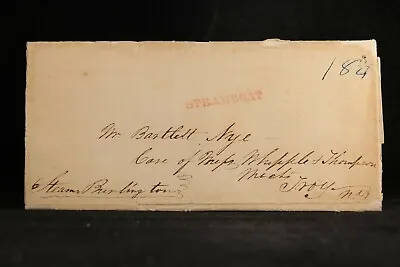 18¾
STEAMBOAT
Mr Bartlett Nye
Care of Messrs Whipple & Thompson
Troy
Steam Burlington